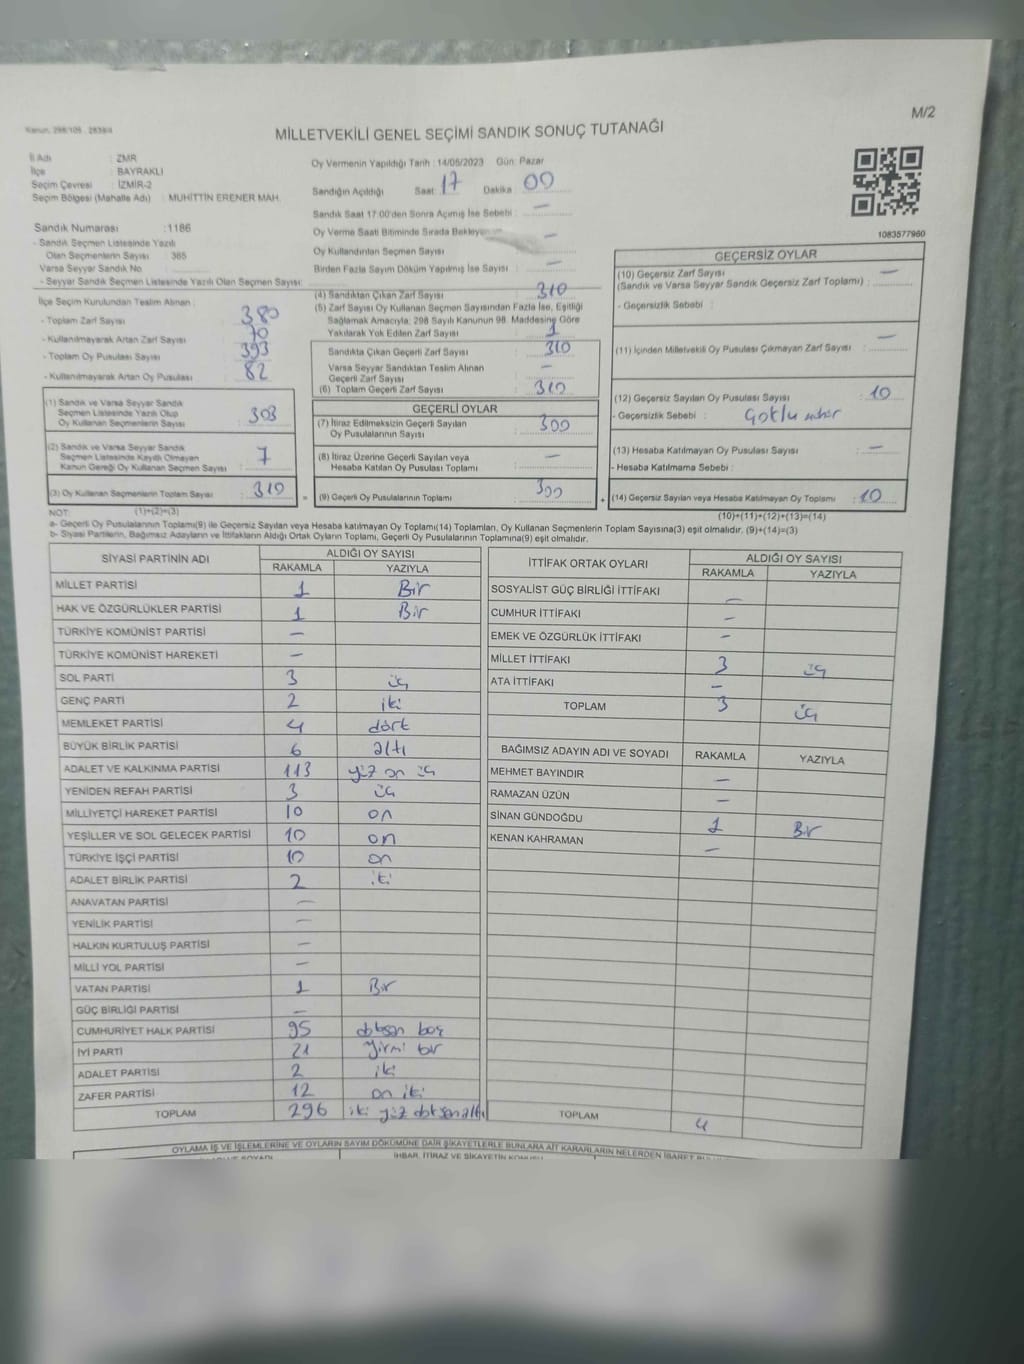 M/2
Kanun. 298/105 . 2839/4
MİLLETVEKİLİ GENEL SEÇİMİ SANDIK SONUÇ TUTANAĞI
İl Adı : ZMR
İlçe : BAYRAKLI
Seçim Çevresi : İZMİR-2
Seçim Bölgesi (Mahalle Adı) : MUHİTTİN ERENER MAH.
Sandık Numarası : 1186
- Sandık Seçmen Listesinde Yazılı
Olan Seçmenlerin Sayısı : 365
Varsa Seyyar Sandık No :
- Seyyar Sandık Seçmen Listesinde Yazılı Olan Seçmen Sayısı:
İlçe Seçim Kurulundan Teslim Alınan :
- Toplam Zarf Sayısı 380
- Kullanılmayarak Artan Zarf Sayısı 70
- Toplam Oy Pusulası Sayısı 393
- Kullanılmayarak Artan Oy Pusulası 82
(1) Sandık ve Varsa Seyyar Sandık
Seçmen Listesinde Yazılı Olup
Oy Kullanan Seçmenlerin Sayısı : 303
(2) Sandık ve Varsa Seyyar Sandık
Seçmen Listesinde Kayıtlı Olmayan
Kanun Gereği Oy Kullanan Seçmen Sayısı : 7
(3) Oy Kullanan Seçmenlerin Toplam Sayısı : 310
(1)+(2)=(3)
Oy Vermenin Yapıldığı Tarih : 14/05/2023 Gün: Pazar
Sandığın Açıldığı Saat : 17 Dakika : 00
Sandık Saat 17:00'den Sonra Açımış İse Sebebi : –
Oy Verme Saati Bitiminde Sırada Bekleyen –
Oy Kullandırılan Seçmen Sayısı
Birden Fazla Sayım Döküm Yapılmış İse Sayısı : –
(4) Sandıktan Çıkan Zarf Sayısı : 310
(5) Zarf Sayısı Oy Kullanan Seçmen Sayısından Fazla İse, Eşitliği
Sağlamak Amacıyla; 298 Sayılı Kanunun 98. Maddesine Göre
Yakılarak Yok Edilen Zarf Sayısı 1
Sandıkta Çıkan Geçerli Zarf Sayısı : 310
Varsa Seyyar Sandıktan Teslim Alınan
Geçerli Zarf Sayısı –
(6) Toplam Geçerli Zarf Sayısı : 310
GEÇERLİ OYLAR
(7) İtiraz Edilmeksizin Geçerli Sayılan
Oy Pusulalarının Sayısı : 300
(8) İtiraz Üzerine Geçerli Sayılan veya
Hesaba Katılan Oy Pusulası Toplamı : –
= (9) Geçerli Oy Pusulalarının Toplamı : 300
1083577960
GEÇERSİZ OYLAR
(10) Geçersiz Zarf Sayısı –
(Sandık ve Varsa Seyyar Sandık Geçersiz Zarf Toplamı) :
- Geçersizlik Sebebi :
(11) İçinden Milletvekili Oy Pusulası Çıkmayan Zarf Sayısı : –
(12) Geçersiz Sayılan Oy Pusulası Sayısı : 10
- Geçersizlik Sebebi :
(13) Hesaba Katılmayan Oy Pusulası Sayısı : –
- Hesaba Katılmama Sebebi :
+ (14) Geçersiz Sayılan veya Hesaba Katılmayan Oy Toplamı : 10
(10)+(11)+(12)+(13)=(14)
NOT:
a- Geçerli Oy Pusulalarının Toplamı(9) ile Geçersiz Sayılan veya Hesaba katılmayan Oy Toplamı(14) Toplamları, Oy Kullanan Seçmenlerin Toplam Sayısına(3) eşit olmalıdır. (9)+(14)=(3)
b- Siyasi Partilerin, Bağımsız Adayların ve İttifakların Aldığı Ortak Oyların Toplamı, Geçerli Oy Pusulalarının Toplamına(9) eşit olmalıdır.
SİYASİ PARTİNİN ADI ALDIĞI OY SAYISI
RAKAMLA YAZIYLA
MİLLET PARTİSİ 1 Bir
HAK VE ÖZGÜRLÜKLER PARTİSİ 1 Bir
TÜRKİYE KOMÜNİST PARTİSİ –
TÜRKİYE KOMÜNİST HAREKETİ –
SOL PARTİ 3 üç
GENÇ PARTİ 2 iki
MEMLEKET PARTİSİ 4 dört
BÜYÜK BİRLİK PARTİSİ 6 altı
ADALET VE KALKINMA PARTİSİ 113 yüz on üç
YENİDEN REFAH PARTİSİ 3 üç
MİLLİYETÇİ HAREKET PARTİSİ 10 on
YEŞİLLER VE SOL GELECEK PARTİSİ 10 on
TÜRKİYE İŞÇİ PARTİSİ 10 on
ADALET BİRLİK PARTİSİ 2 iki
ANAVATAN PARTİSİ –
YENİLİK PARTİSİ –
HALKIN KURTULUŞ PARTİSİ –
MİLLİ YOL PARTİSİ –
VATAN PARTİSİ 1 Bir
GÜÇ BİRLİĞİ PARTİSİ –
CUMHURİYET HALK PARTİSİ 95 doksan beş
İYİ PARTİ 21 Yirmi bir
ADALET PARTİSİ 2 iki
ZAFER PARTİSİ 12 on iki
TOPLAM 296 iki yüz doksan altı
İTTİFAK ORTAK OYLARI ALDIĞI OY SAYISI
RAKAMLA YAZIYLA
SOSYALİST GÜÇ BİRLİĞİ İTTİFAKI –
CUMHUR İTTİFAKI –
EMEK VE ÖZGÜRLÜK İTTİFAKI –
MİLLET İTTİFAKI 3 üç
ATA İTTİFAKI –
TOPLAM 3 üç
BAĞIMSIZ ADAYIN ADI VE SOYADI RAKAMLA YAZIYLA
MEHMET BAYINDIR –
RAMAZAN ÜZÜN –
SİNAN GÜNDOĞDU 1 Bir
KENAN KAHRAMAN –
TOPLAM 4
OYLAMA İŞ VE İŞLEMLERİNE VE OYLARIN SAYIM DÖKÜMÜNE DAİR ŞİKAYETLERLE BUNLARA AİT KARARLARIN NELERDEN İBARET
İHBAR, İTİRAZ VE ŞİKAYETİN